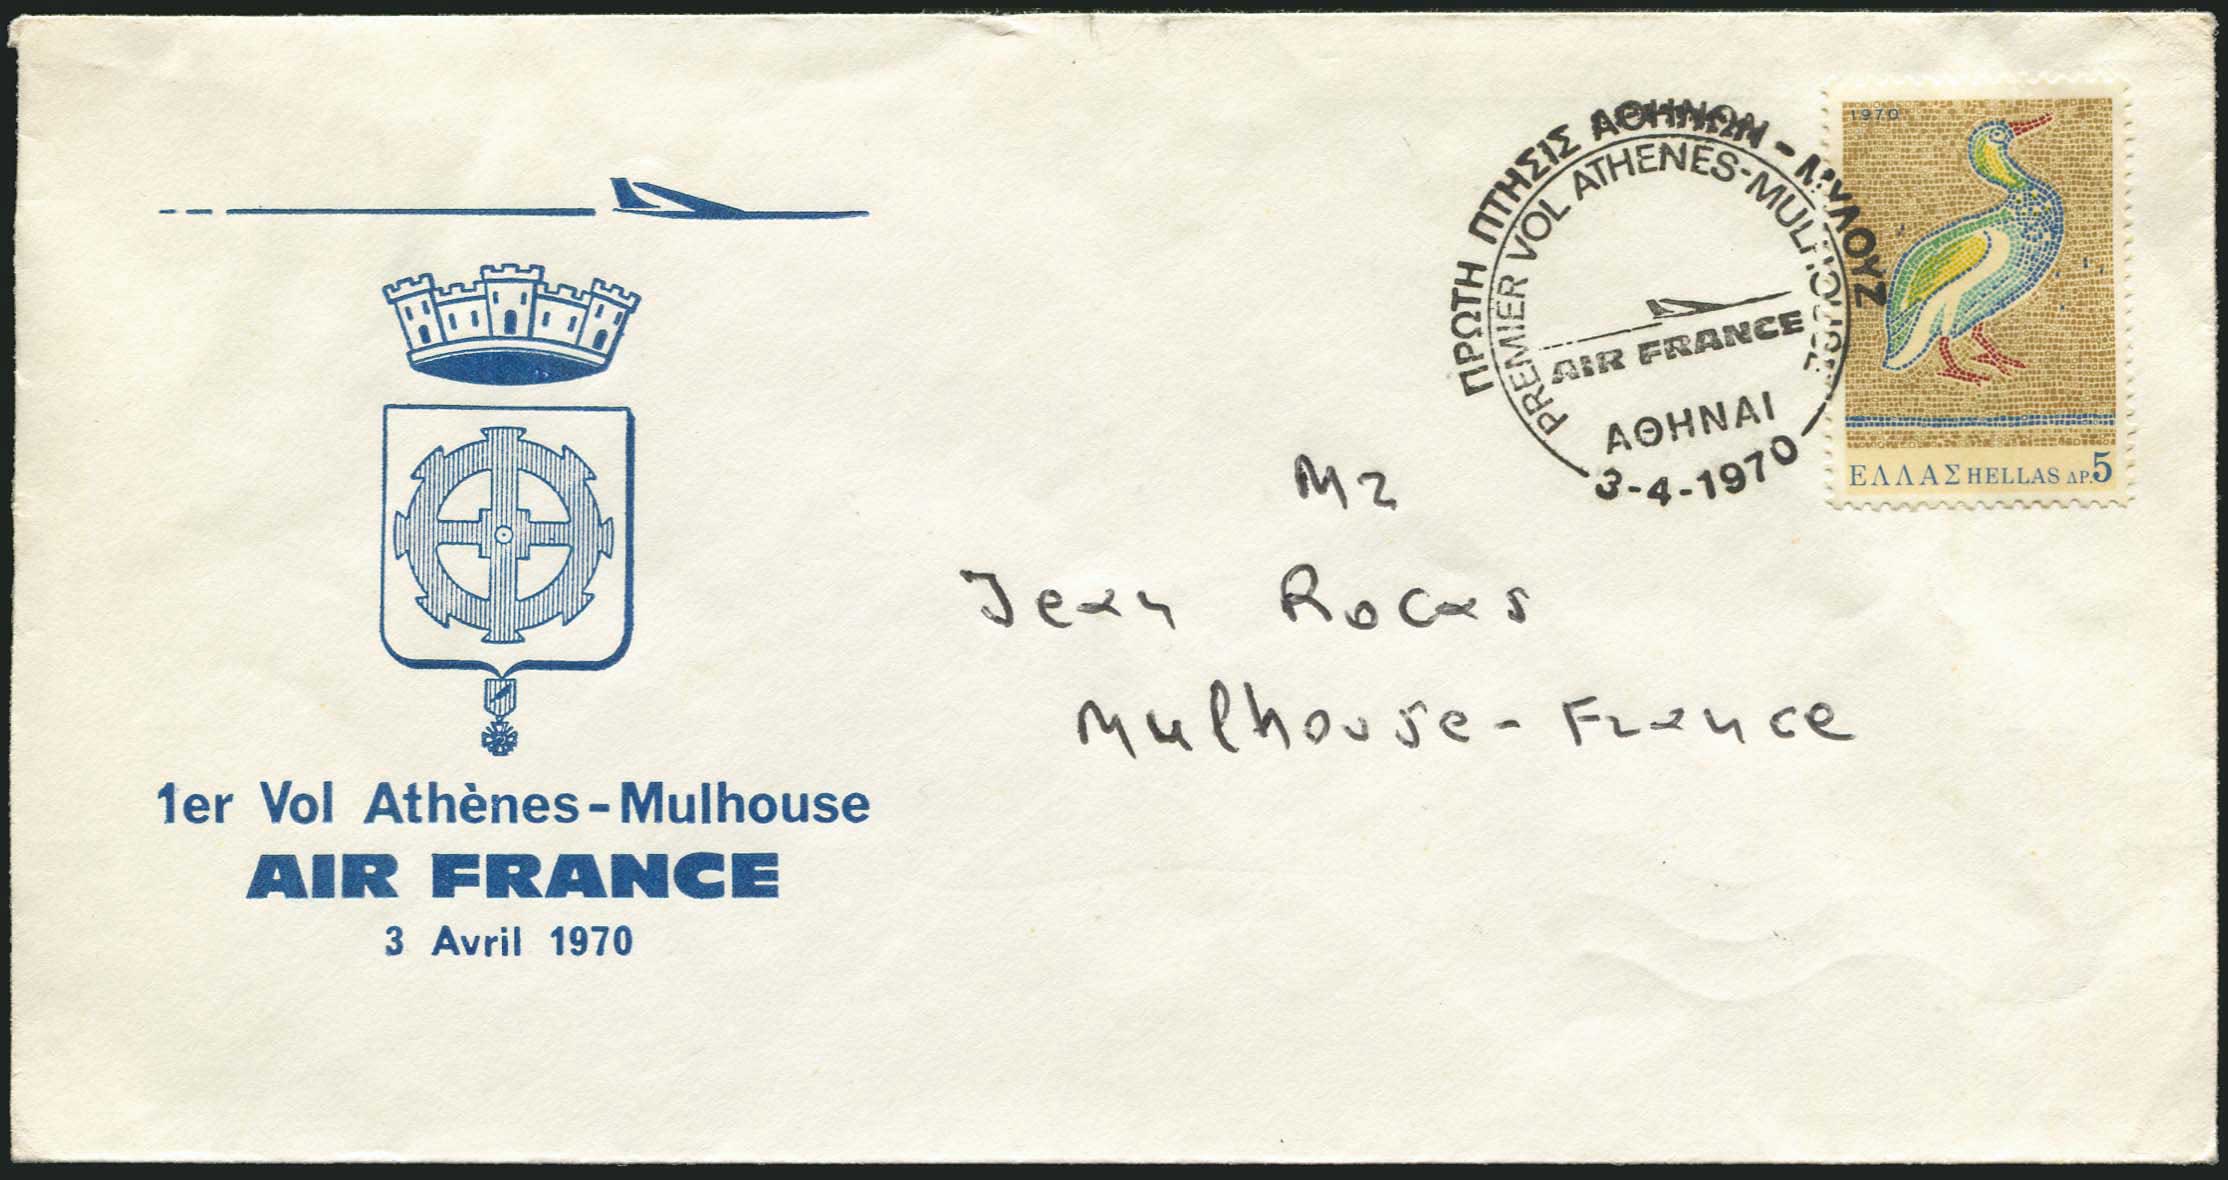 1er Vol Athènes-Mulhouse
AIR FRANCE
3 Avril 1970
ΠΡΩΤΗ ΠΤΗΣΙΣ ΑΘΗΝΩΝ - ΜΥΛΟΥΖ
PREMIER VOL ATHENES-MULHOUSE
AIR FRANCE
ΑΘΗΝΑΙ
3-4-1970
1970
ΕΛΛΑΣ HELLAS ΔΡ. 5
Mr
Jean Rocas
Mulhouse - France